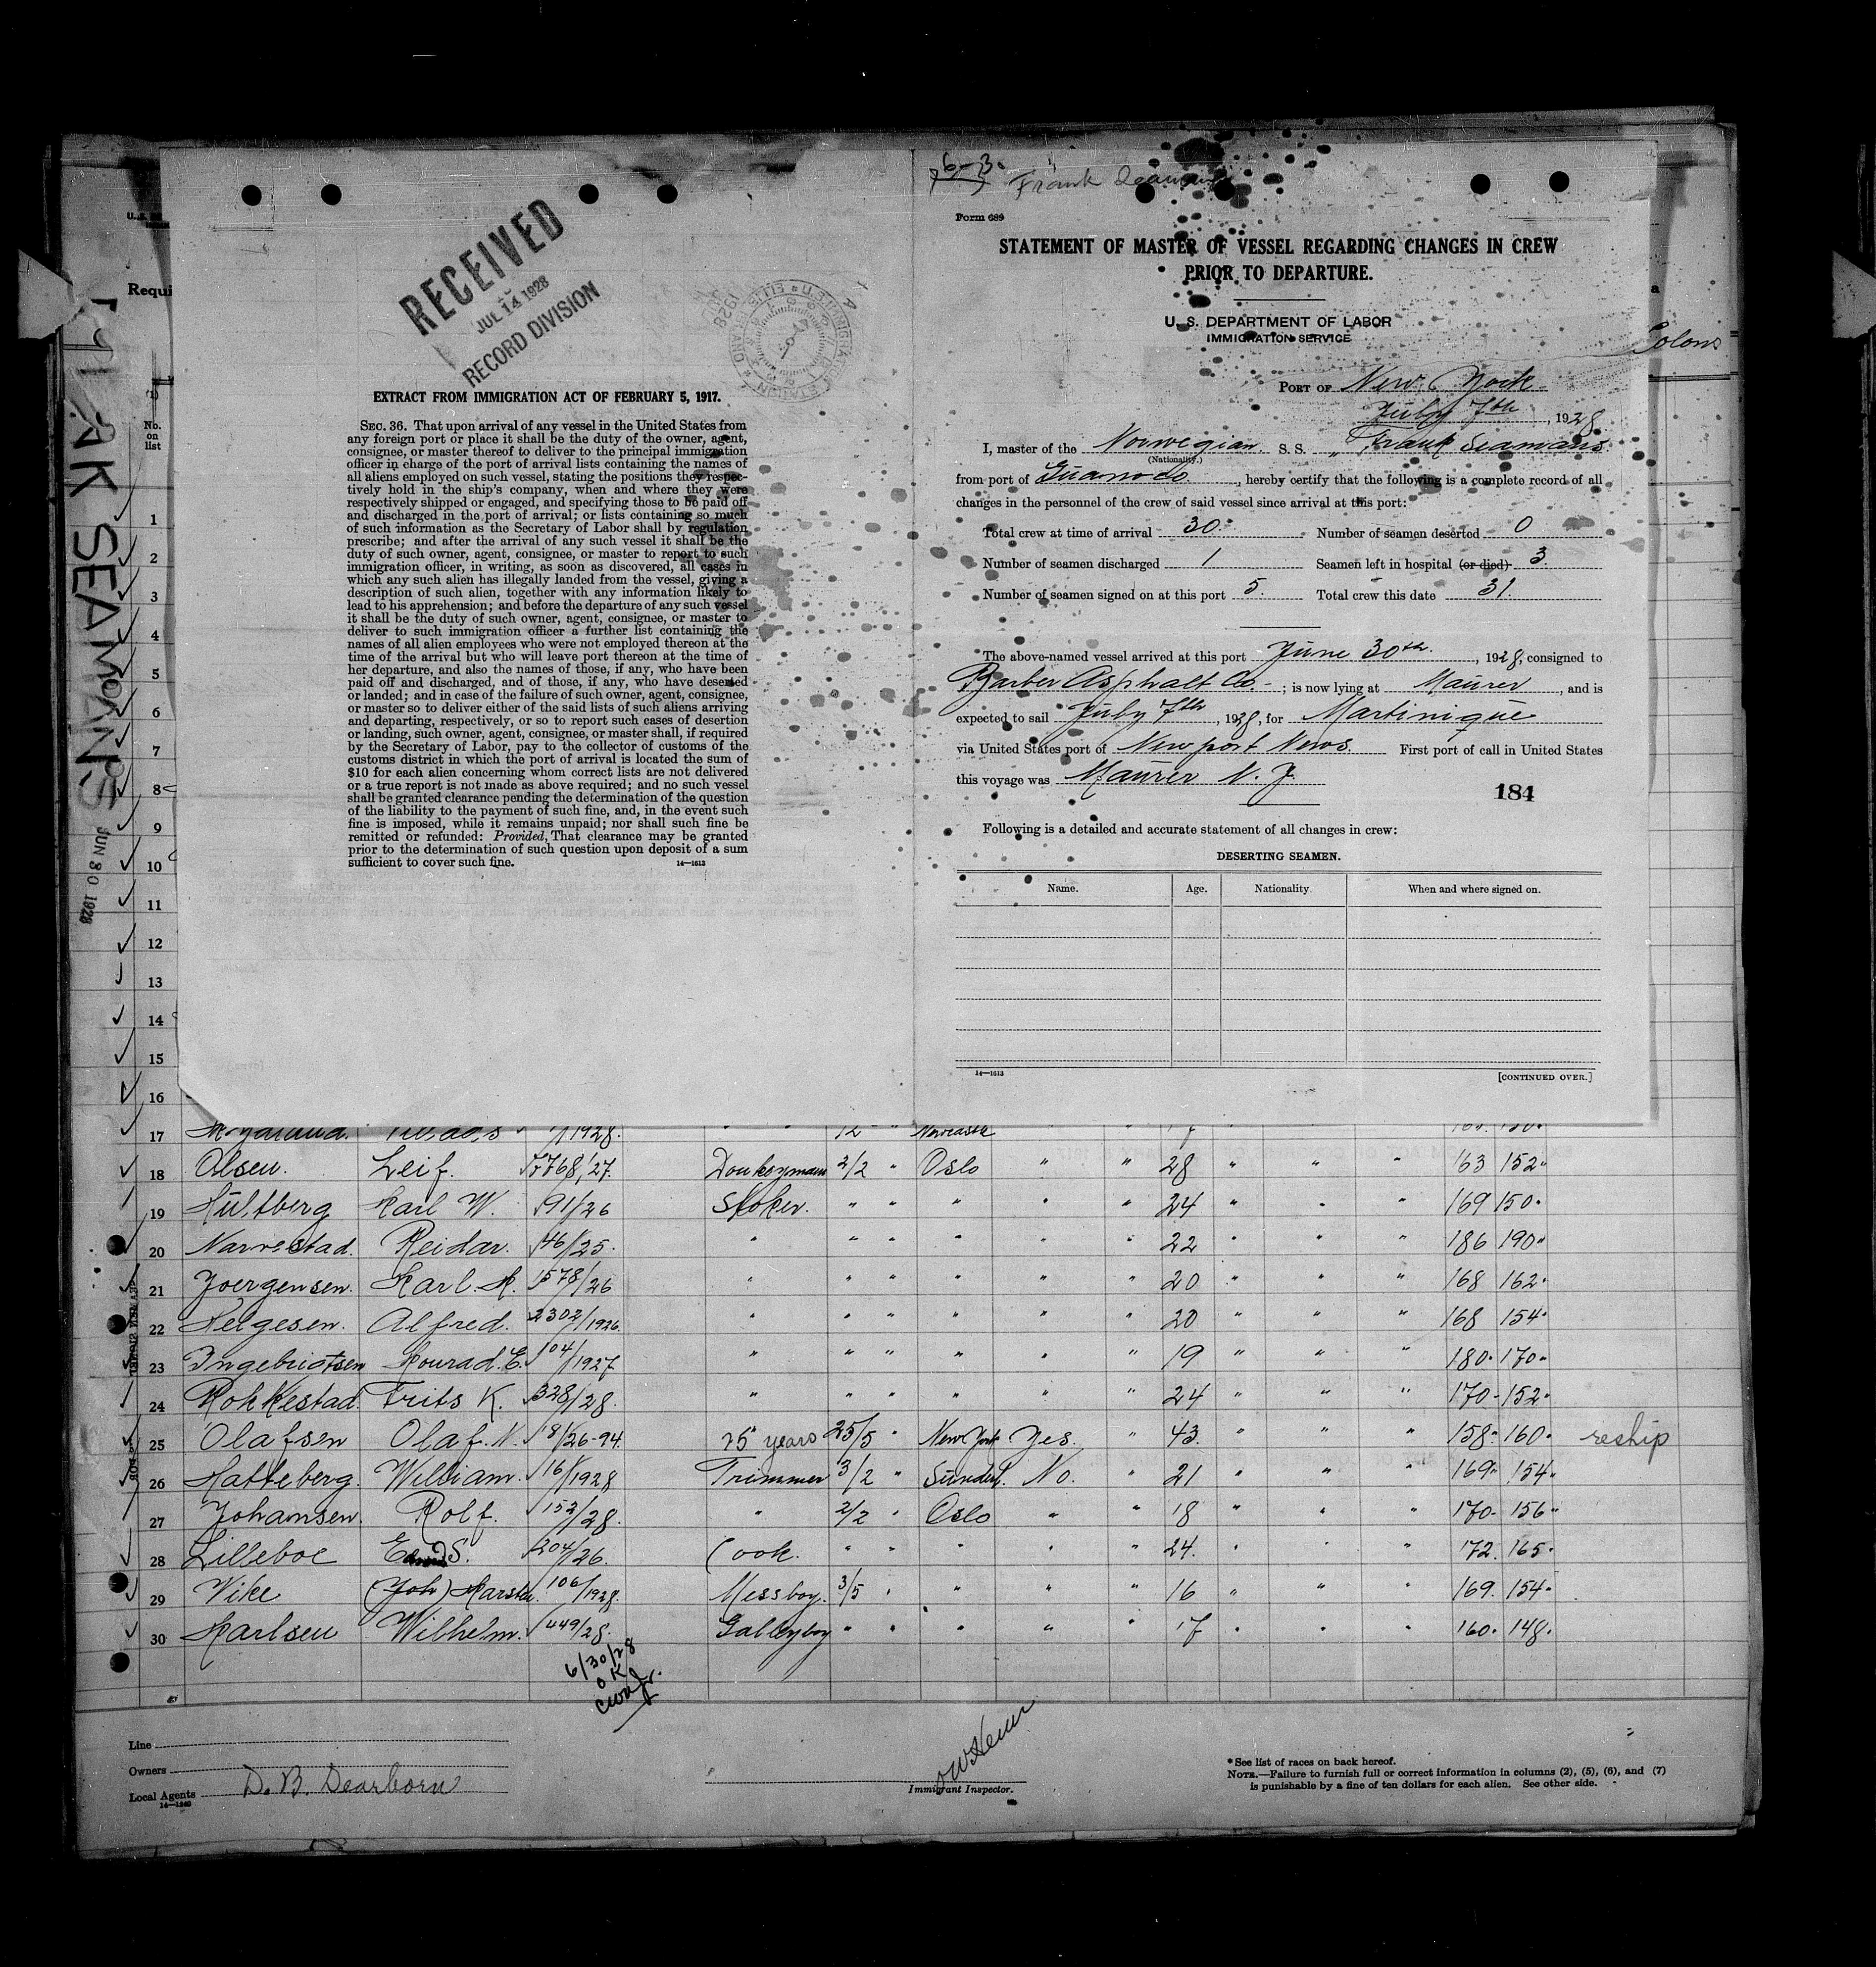 RECEIVED
JUL 14 1928
RECORD DIVISION
EXTRACT FROM IMMIGRATION ACT OF FEBRUARY 5, 1917.
SEC. 36. That upon arrival of any vessel in the United States from
any foreign port or place it shall be the duty of the owner, agent,
consignee, or master thereof to deliver to the principal immigration
officer in charge of the port of arrival lists containing the names of
all aliens employed on such vessel, stating the positions they respec-
tively hold in the ship's company, when and where they were
respectively shipped or engaged, and specifying those to be paid off
and discharged in the port of arrival; or lists containing so much
of such information as the Secretary of Labor shall by regulation
prescribe; and after the arrival of any such vessel it shall be the
duty of such owner, agent, consignee, or master to report to such
immigration officer, in writing, as soon as discovered, all cases in
which any such alien has illegally landed from the vessel, giving a
description of such alien, together with any information likely to
lead to his apprehension; and before the departure of any such vessel
it shall be the duty of such owner, agent, consignee, or master to
deliver to such immigration officer a further list containing the
names of all alien employees who were not employed thereon at the
time of the arrival but who will leave port thereon at the time of
her departure, and also the names of those, if any, who have been
paid off and discharged, and of those, if any, who have deserted
or landed; and in case of the failure of such owner, agent, consignee,
or master so to deliver either of the said lists of such aliens arriving
and departing, respectively, or so to report such cases of desertion
or landing, such owner, agent, consignee, or master shall, if required
by the Secretary of Labor, pay to the collector of customs of the
customs district in which the port of arrival is located the sum of
$10 for each alien concerning whom correct lists are not delivered
or a true report is not made as above required; and no such vessel
shall be granted clearance pending the determination of the question
of the liability to the payment of such fine, and, in the event such
fine is imposed, while it remains unpaid; nor shall such fine be
remitted or refunded: Provided, That clearance may be granted
prior to the determination of such question upon deposit of a sum
sufficient to cover such fine.
14—1613
6-3. Frank Seamans
Form 689
STATEMENT OF MASTER OF VESSEL REGARDING CHANGES IN CREW
PRIOR TO DEPARTURE.
U. S. DEPARTMENT OF LABOR
IMMIGRATION SERVICE
PORT OF New York
July 7th, 1928
I, master of the Norwegian S. S. "Frank Seamans
(Nationality.)
from port of Guanoco, hereby certify that the following is a complete record of all
changes in the personnel of the crew of said vessel since arrival at this port:
Total crew at time of arrival 30. Number of seamen deserted 0
Number of seamen discharged 1 Seamen left in hospital (or died) 3.
Number of seamen signed on at this port 5. Total crew this date 31.
The above-named vessel arrived at this port June 30th, 1928, consigned to
Barber Asphalt Co.; is now lying at Maurer, and is
expected to sail July 7th, 1928, for Martinique
via United States port of Newport News. First port of call in United States
this voyage was Maurer N. J.
184
Following is a detailed and accurate statement of all changes in crew:
DESERTING SEAMEN.
Name. Age. Nationality. When and where signed on.
14—1613 [CONTINUED OVER.]
Requi
Colon
No.
on
list
SEAMANS
JUN 30 1928
1
2
3
4
5
6
7
8
9
10
11
12
13
14
15
16
17 1928. 12 Newcastle 17
18 Olsen. Leif. 7768/27. Donkeyman 2/2 " Oslo " " 28 " " " 163 152"
19 Hultberg Karl W. 91/26 Stoker. " " " " " 24 " " " 169 150"
20 Narvestad. Reidar. 46/25. " " " " " " 22 " " " 186 190"
21 Joergensen. Karl. H. 1578/26 " " " " " " 20 " " " 168 162"
22 Helgesen. Alfred. 2302/1926. " " " " " " 20 " " " 168 154"
23 Ingebrigtsen Konrad. E. 104/1927 " " " " " " 19 " " " 180" 170"
24 Rokkestad. Frits K. 328/28. " " " " " " 24 " " " 170" 152"
25 Olafsen Olaf. N. 18/26-94. 25 years 23/5 " New York Yes. " 43. " " " 158" 160" reship
26 Hatteberg. William. 16/1928 Trimmer 3/2 " Sunderl. No. " 21 " " " 169" 154"
27 Johansen. Rolf. 152/28. " 2/2 " Oslo " " 18 " " " 170" 156"
28 Lilleboe S. 204/26. Cook. " " " " " 24. " " " 172. 165"
29 Vike (Joh) Karsten. 106/1928. Messboy. 3/5 " " " " 16 " " " 169. 154"
30 Karlsen Wilhelm. 449/28. Galleyboy " " " " " 17 " " " 160" 148"
6/30/28
OK
Line
Owners
Local Agents D. B. Dearborn
14—1240
Immigrant Inspector.
*See list of races on back hereof.
NOTE.—Failure to furnish full or correct information in columns (2), (5), (6), and (7)
is punishable by a fine of ten dollars for each alien. See other side.